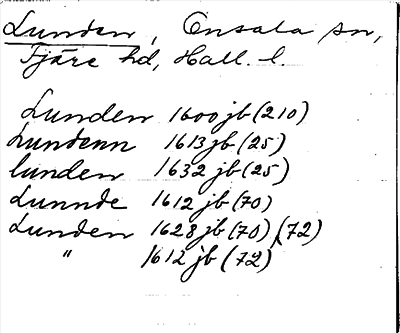 Lunden, Onsala sn,
Fjäre hd, Hall. l.
Lunden 1600 jb (210)
Lundenn 1613 jb (25)
lunden 1632 jb (25)
Lunnde 1612 jb (70)
Lunden 1628 jb (70) (72)
" 1612 jb (72)